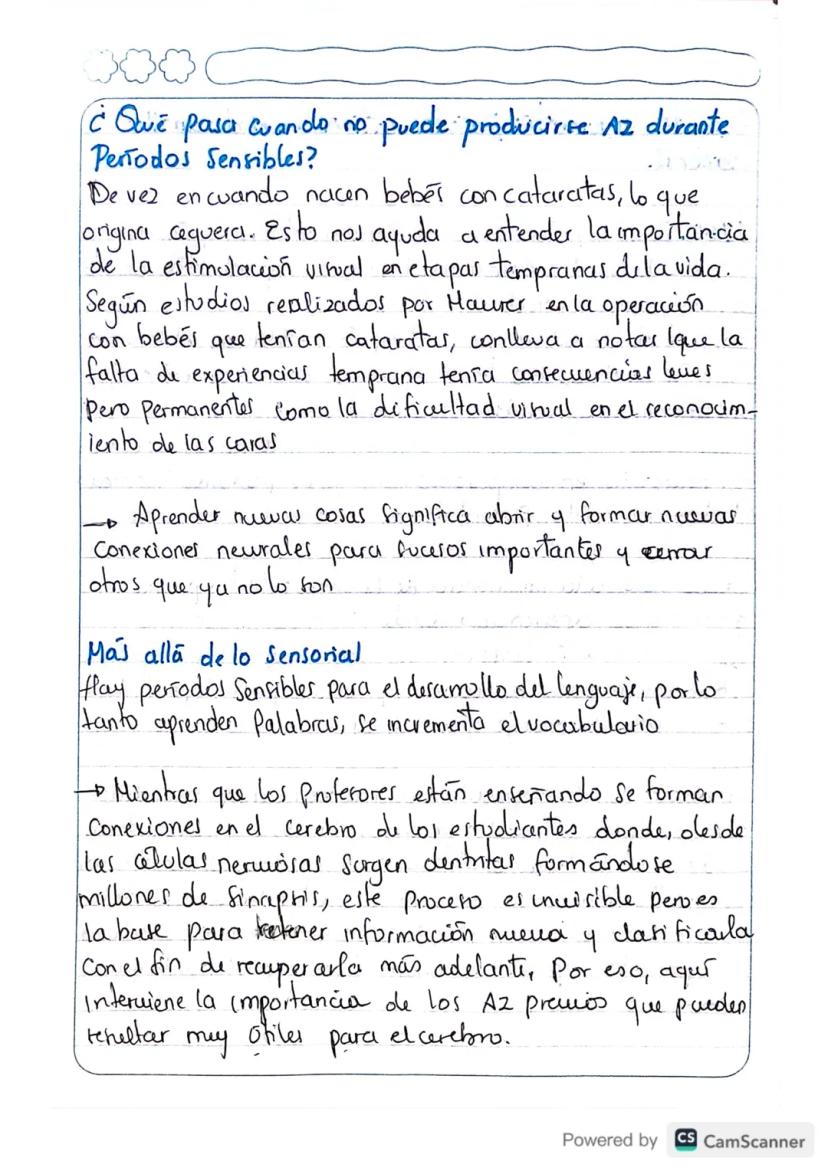 ¿Qué pasa cuando no puede producirse AZ durante
Períodos Sensibles?
De vez en cuando nacen bebés con cataratas, lo que
origina ceguera. Esto nos ayuda a entender la importancia
de la estimulación visual en etapas tempranas de la vida.
Según estudios realizados por Maurer en la operación
con bebés que tenían cataratas, conlleva a notar que la
falta de experiencias temprana tenía consecuencias leves
pero permanentes como la dificultad visual en el reconocim-
iento de las caras
→ Aprender nuevas cosas significa abrir y formar nuevas
conexiones neurales para sucesos importantes y cerrar
otros que ya no lo son
Más allá de lo Sensorial
Hay períodos Sensibles para el desarrollo del lenguaje, por lo
tanto aprenden Palabras, se incrementa el vocabulario
→ Mientras que los Profesores están enseñando se forman
Conexiones en el cerebro de los estudiantes donde, desde
las células nerviosas Surgen dentritas formándose
millones de Sinapsis, este proceso es invisible pero es
la base para retener información nueva y clasificarla
Con el fin de recuperarla más adelante, Por eso, aquí
interviene la importancia de los AZ previos que pueden
resultar muy útiles para el cerebro.
Powered by CS CamScanner